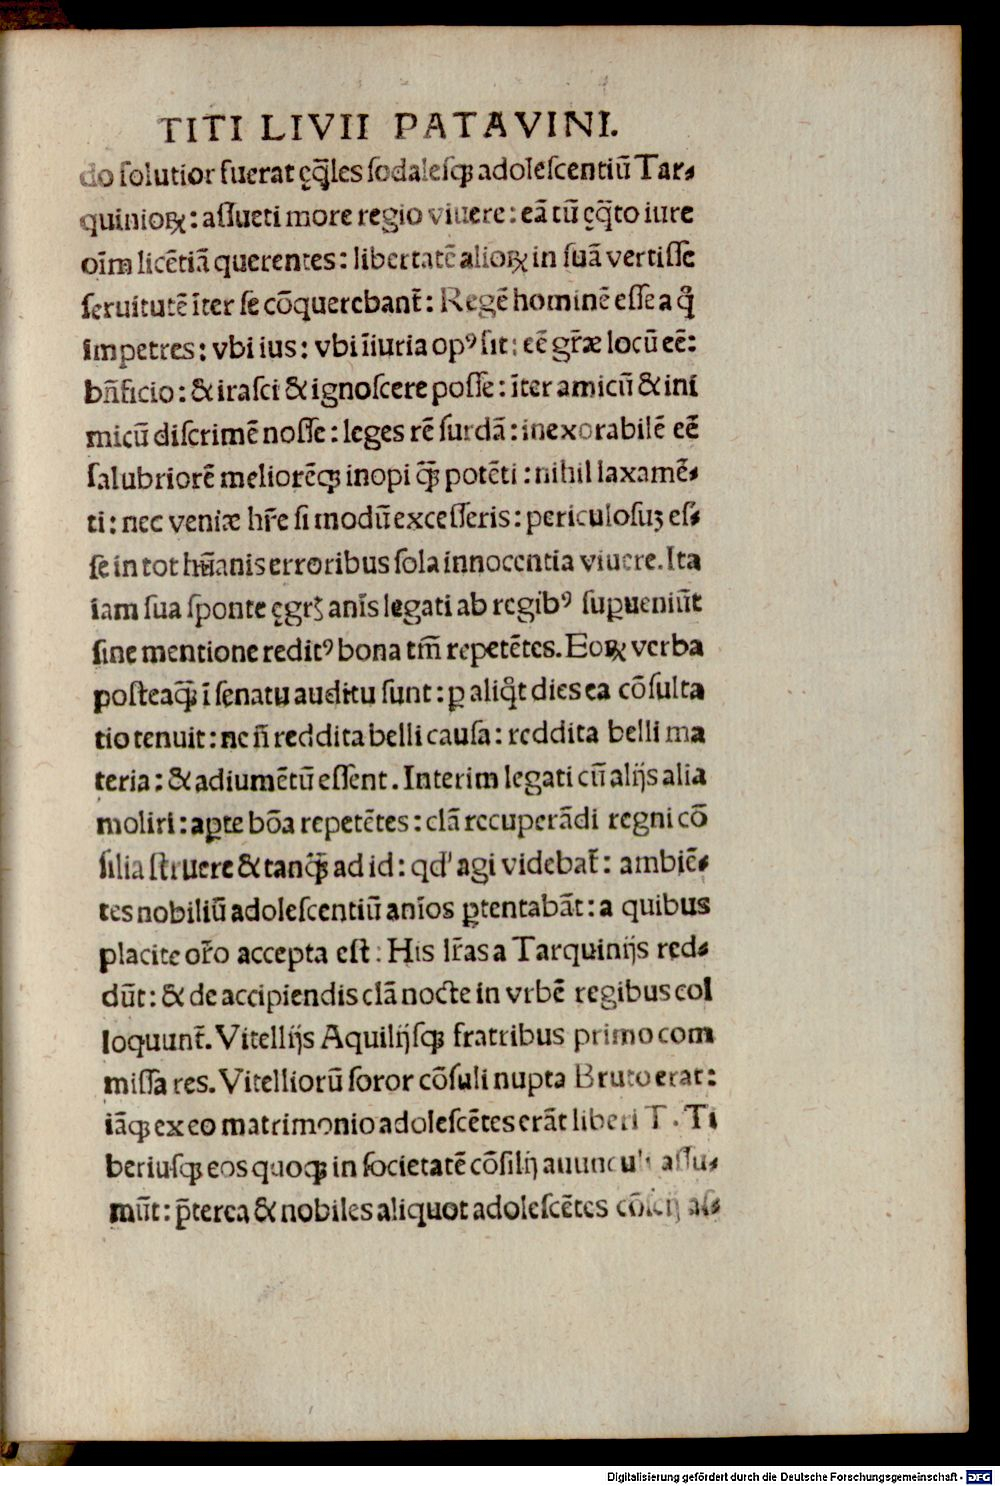 TITI LIVII PATAVINI.
do solutior fuerat ęq̄les sodalesqꝫ adolescentiū Tar⸗
quinioꝝ: assueti more regio viuere: eā tū ęq̄to iure
oīm licētiā querentes: libertatē alioꝝ in suā vertisse
seruitutē īter se cōquerebant̄: Regē hominē esse a q̊
impetres: vbi ius: vbi īiuria opꝰ sit: eē gr̄æ locū eē:
bn̄ficio: & irasci & ignoscere posse: īter amicū & ini
micū discrimē nosse: leges rē surdā: inexorabilē eē
salubriorē meliorēqꝫ inopi q̄ꝫ potēti: nihil laxamē⸗
ti: nec veniæ hr̄e si modū excesseris: periculosuꝫ es⸗
se in tot hūanis erroribus sola innocentia viuere. Ita
iam sua sponte ęgrꝭ anīs legati ab regibꝰ suꝑueniūt
sine mentione reditꝰ bona tm̄ repetētes. Eoꝝ verba
posteaq̄ꝫ ī senatu auditu sunt: ꝑ aliq̊t dies ea cōsulta
tio tenuit: ne n̄ reddita belli causa: reddita belli ma
teria: & adiumētū essent. Interim legati cū alijs alia
moliri: aꝑte bōa repetētes: clā recuperādi regni cō
silia struere & tanq̄ꝫ ad id: qd' agi videbat̄: ambiē⸗
tes nobiliū adolescentiū anīos ꝑtentabāt: a quibus
placite or̄o accepta est: His lr̄as a Tarquinijs red⸗
dūt: & de accipiendis clā nocte in vrbē regibus col
loquunt̄. Vitellijs Aquilijsqꝫ fratribus primo com
missa res. Vitelliorū soror cōsuli nupta Bruto erat:
iāqꝫ ex eo matrimonio adolescētes erāt liberi T. Ti
beriusqꝫ eos quoqꝫ in societatē cōsilij auunculi assu⸗
mūt: p̄terea & nobiles aliquot adolescētes cōscij as⸗
Digitalisierung gefördert durch die Deutsche Forschungsgemeinschaft - DFG